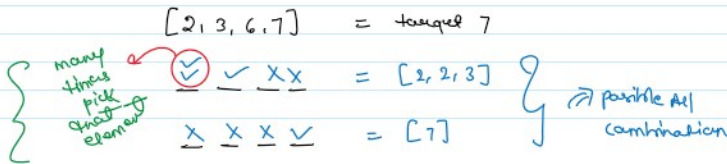 [2, 3, 6, 7] = target 7
many
times
pick
that
element
✓✓ ✓ X X = [2, 2, 3]
X X X ✓ = [7]
possible All
combination